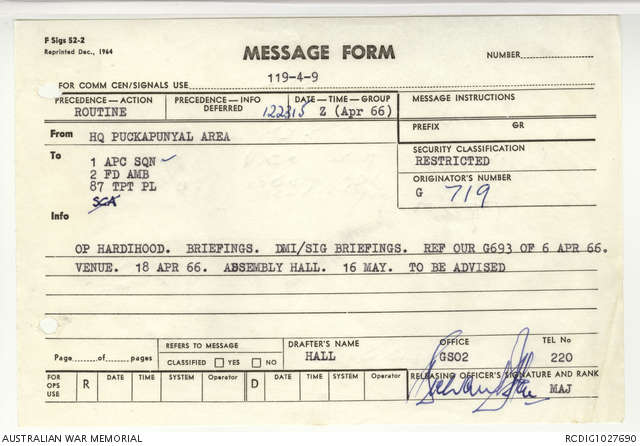 F Sigs 52-2
Reprinted Dec., 1964
MESSAGE FORM
NUMBER
FOR COMM CEN/SIGNALS USE 119-4-9
PRECEDENCE—ACTION
ROUTINE
PRECEDENCE—INFO
DEFERRED
DATE—TIME—GROUP
122315 Z (Apr 66)
MESSAGE INSTRUCTIONS
PREFIX GR
From HQ PUCKAPUNYAL AREA
To
1 APC SQN
2 FD AMB
87 TPT PL
SECURITY CLASSIFICATION
RESTRICTED
ORIGINATOR'S NUMBER
G 719
Info
OP HARDIHOOD. BRIEFINGS. DMI/SIG BRIEFINGS. REF OUR G693 OF 6 APR 66.
VENUE. 18 APR 66. ASSEMBLY HALL. 16 MAY. TO BE ADVISED
Page of pages
REFERS TO MESSAGE
CLASSIFIED YES NO
DRAFTER'S NAME
HALL
OFFICE
GSO2
TEL No
220
FOR OPS USE R DATE TIME SYSTEM Operator D DATE TIME SYSTEM Operator
RELEASING OFFICER'S SIGNATURE AND RANK
MAJ
AUSTRALIAN WAR MEMORIAL
RCDIG1027690